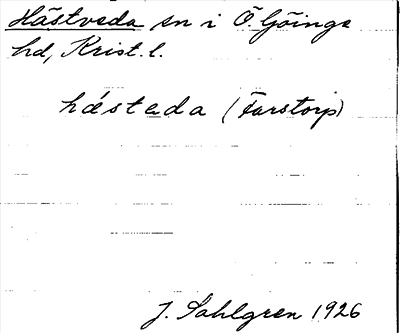 Hästveda sn i Ö. Göinge
hd, Krist. l.
hástada (Farstorp)
J. Sahlgren 1926